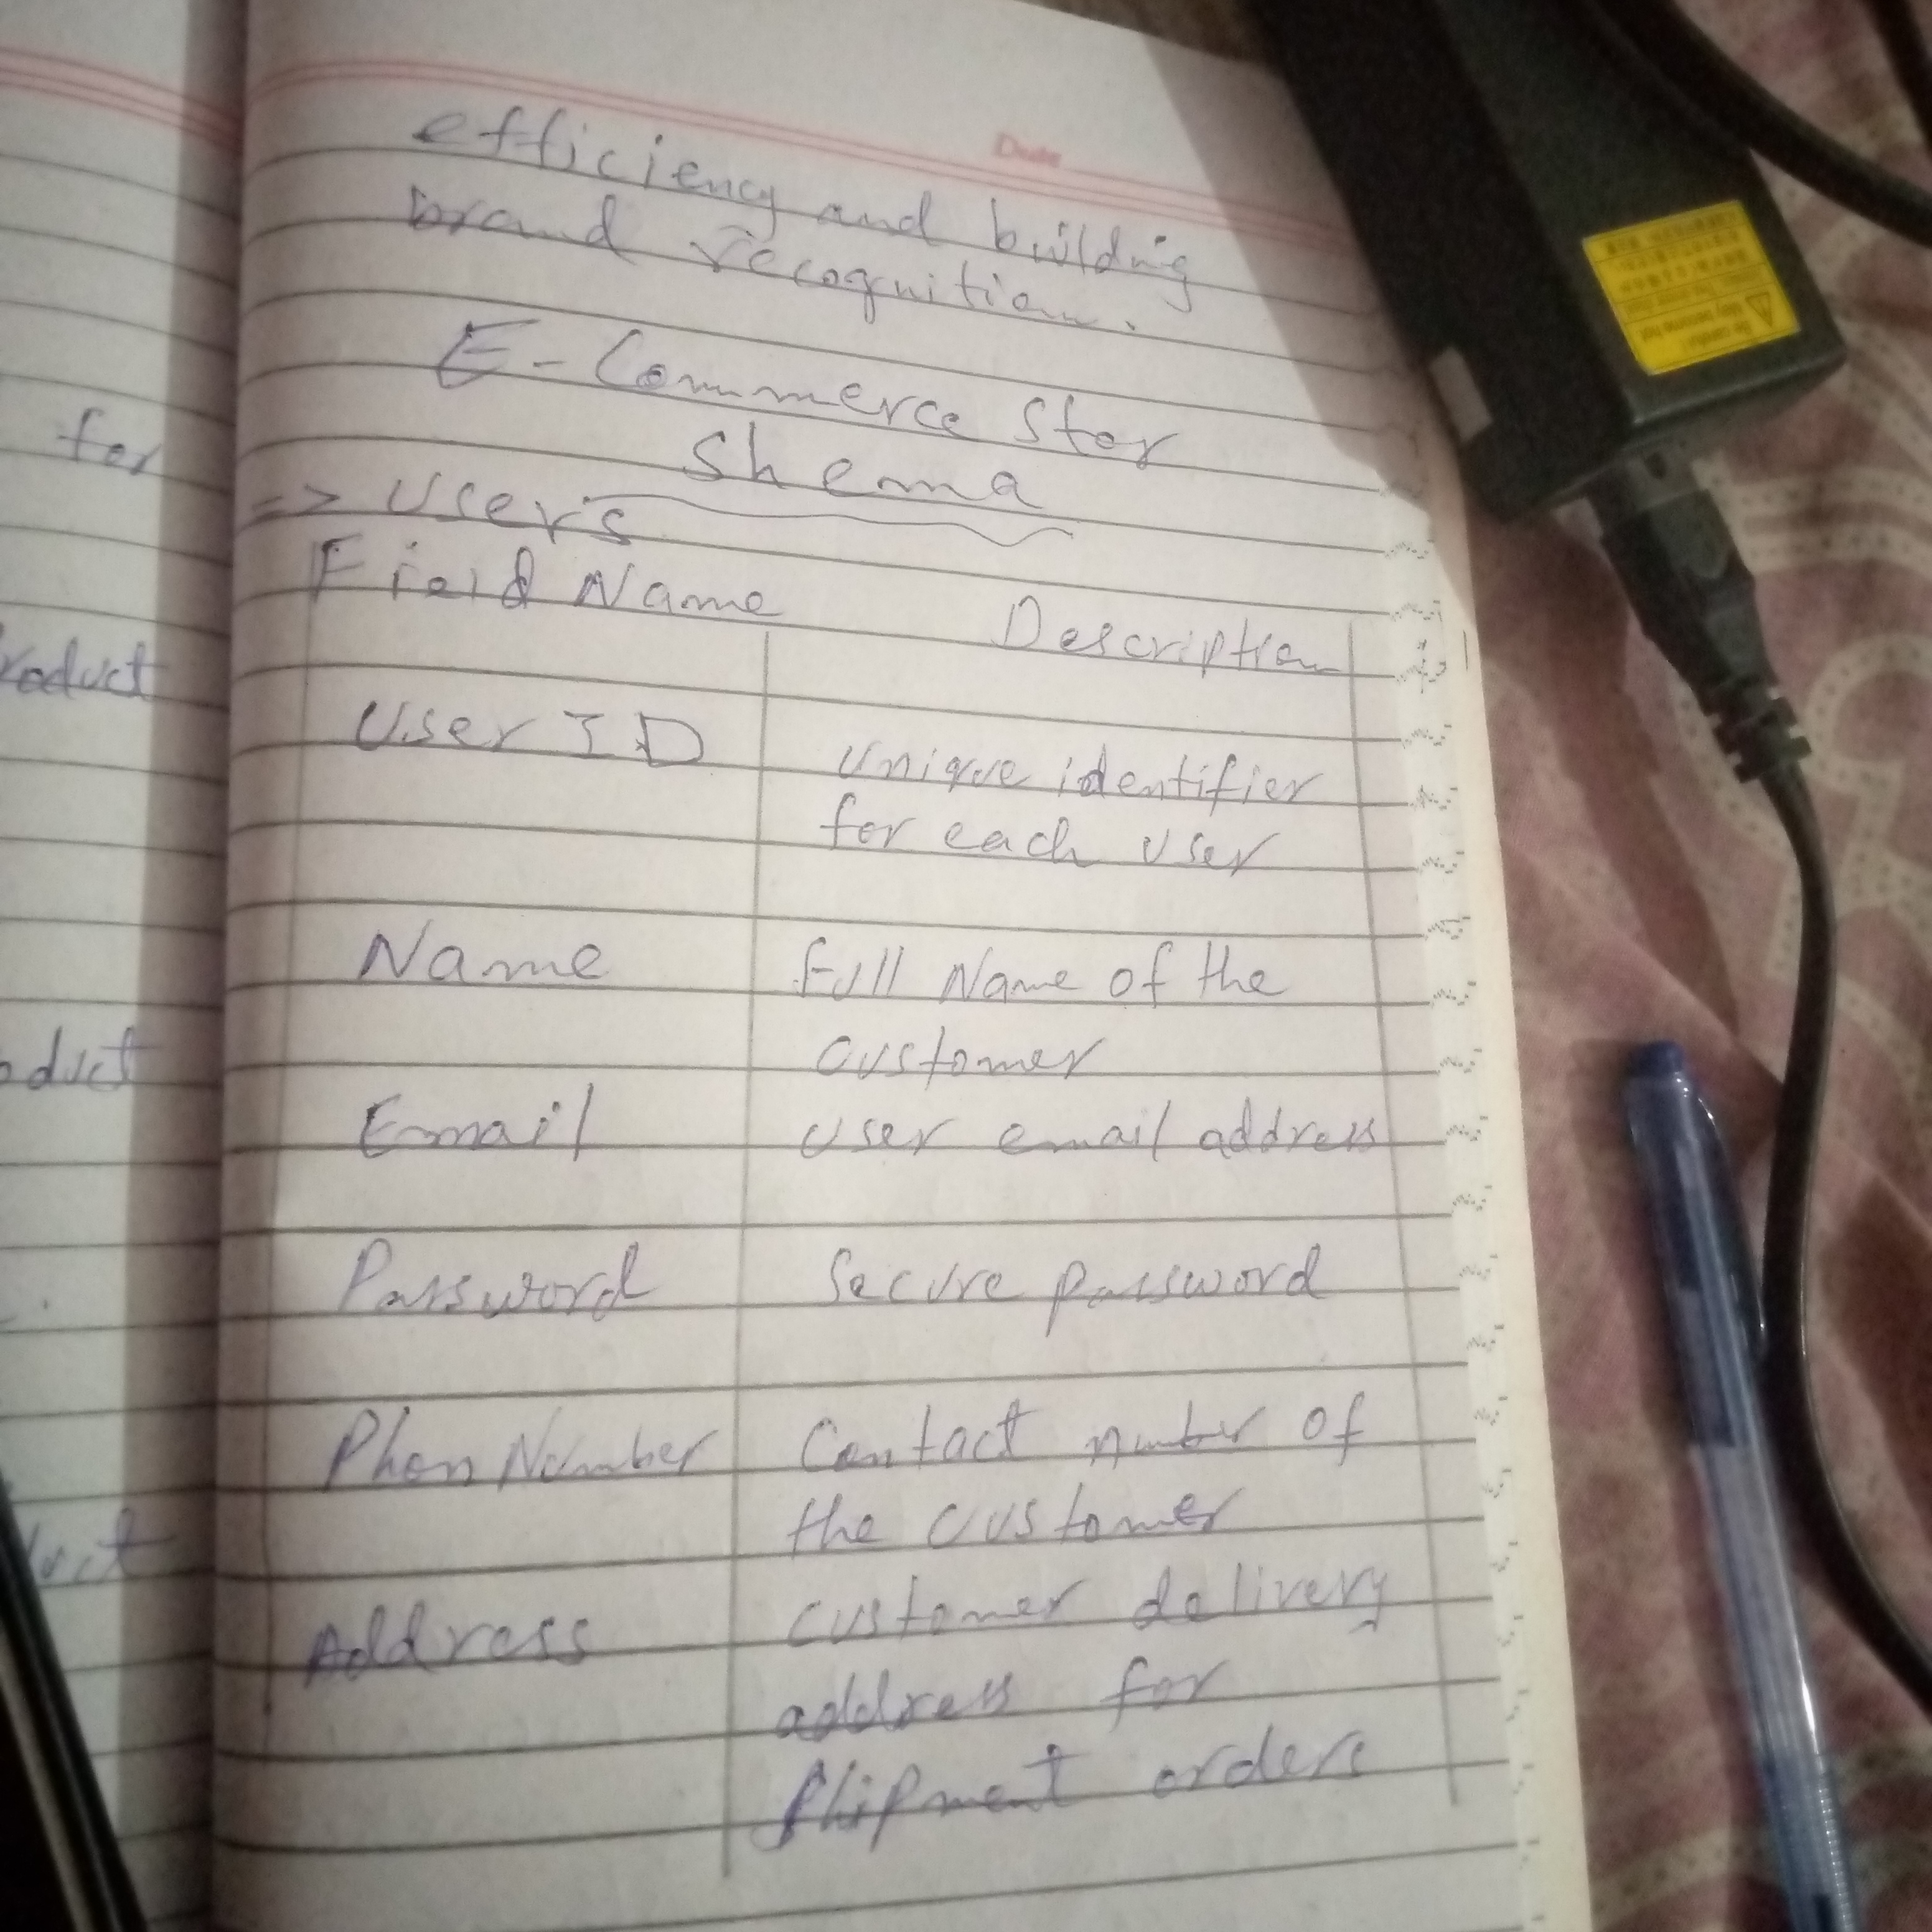 efficiency and building
brand recognition.
E-Commerce Stor
Shema
=> Users
Field Name Description
User ID unique identifier
for each user
Name Full Name of the
customer
Email user email address
Password Secure password
Phon Number Contact number of
the customer
Address customer delivery
address for
Shipment orders
Date
for
roduct
oduct